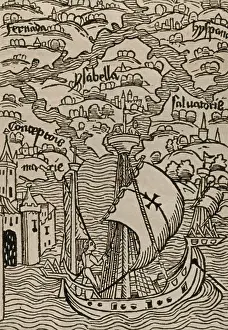 Fernada
hyspana
Ysabella
Saluatorie
Conceptois
marie